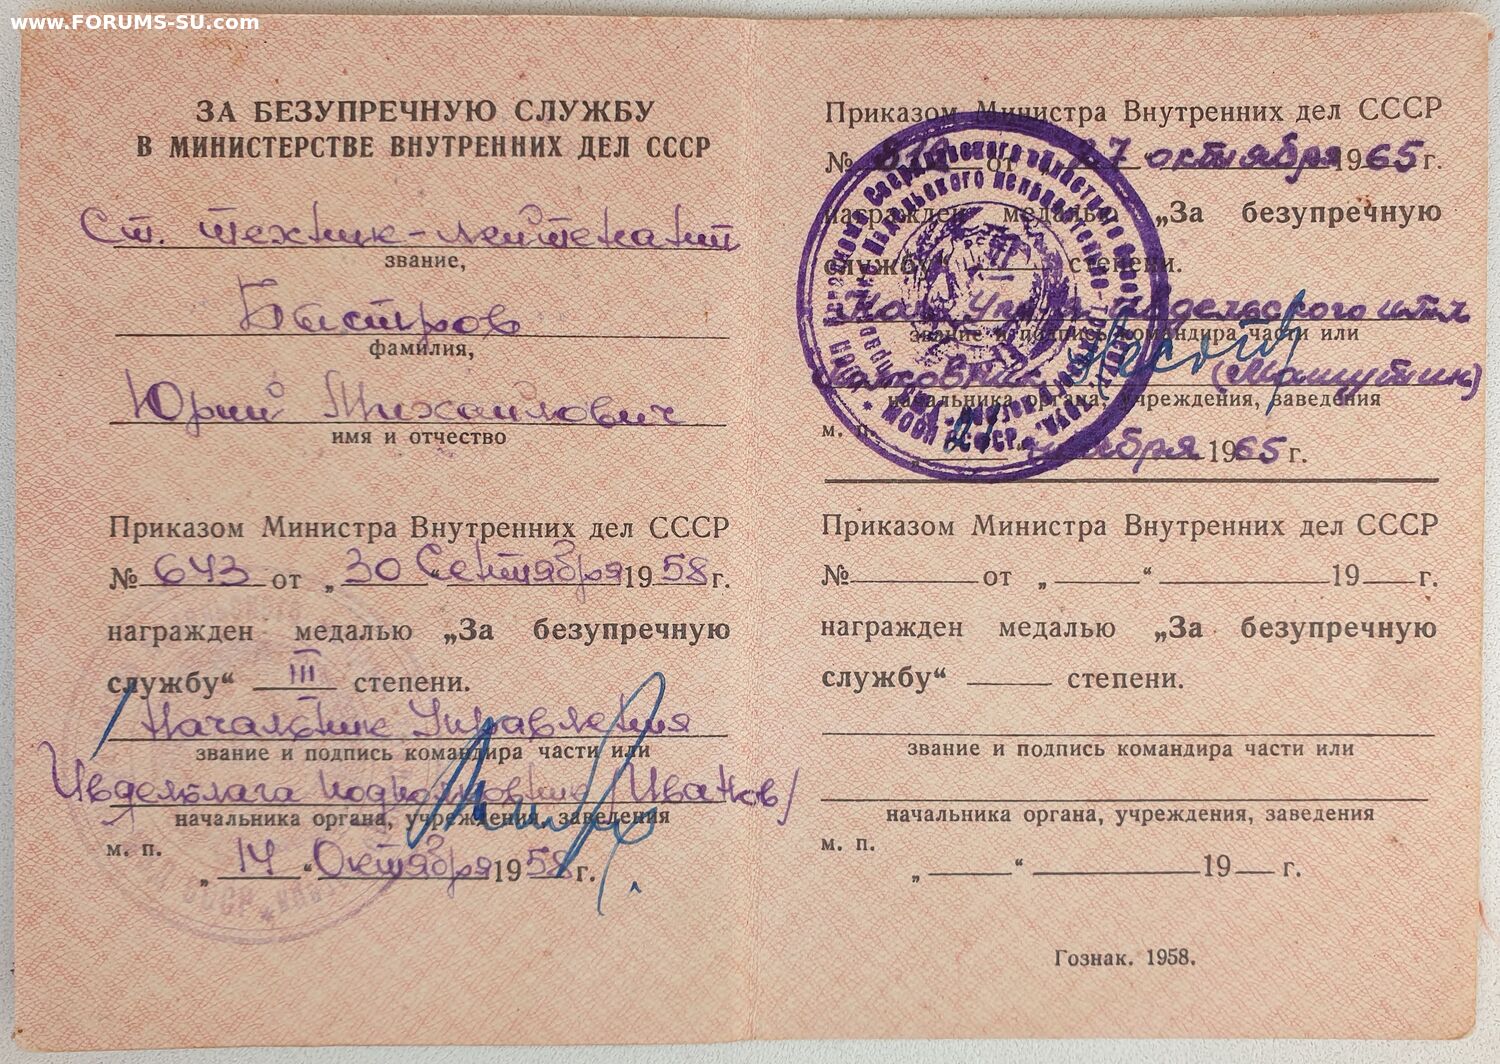 www.FORUMS-SU.com
ЗА БЕЗУПРЕЧНУЮ СЛУЖБУ
В МИНИСТЕРСТВЕ ВНУТРЕННИХ ДЕЛ СССР
Ст. техник-лейтенант
звание,
Быстров
фамилия,
Юрий Михайлович
имя и отчество
Приказом Министра Внутренних дел СССР
№ 643 от „30“ Сентября 1958 г.
награжден медалью „За безупречную
службу“ III степени.
Начальник Управления
звание и подпись командира части или
Ивдельлага подполковник /Иванов/
начальника органа, учреждения, заведения
м. п.
„14“ Октября 1958 г.
Приказом Министра Внутренних дел СССР
№ от 27 октября 1965 г.
награжден медалью „За безупречную
службу“ II степени.
Нач. Управл. Ивдельского ИТЛ
звание и подпись командира части или
Полковник (Машутин)
начальника органа, учреждения, заведения
м. п.
„21“ декабря 1965 г.
Приказом Министра Внутренних дел СССР
№ от „ “ 19 г.
награжден медалью „За безупречную
службу“ степени.
звание и подпись командира части или
начальника органа, учреждения, заведения
м. п.
„ “ 19 г.
Гознак. 1958.